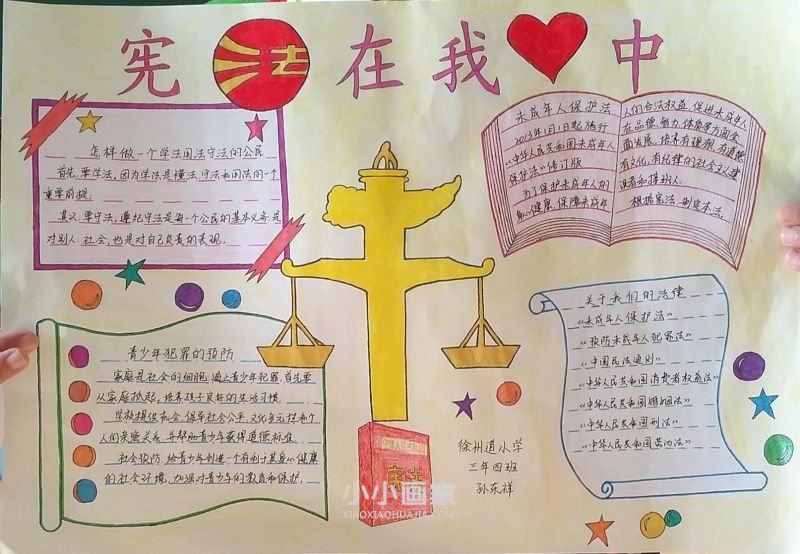 宪法在我中
怎样做一个学法用法守法的公民
首先,要学法,因为学法是懂法,守法和用法的一个
重要前提。
其次,要守法,遵纪守法是每一个公民的基本义务,是
对别人、社会,也是对自己负责的表现。
未成年人保护法
2013年1月1日起施行
《中华人民共和国未成年人
保护法》修订版
为了保护未成年人的
身心健康,保障未成年
人们合法权益,促进未成年人
在品德、智力、体质等方面全
面发展,培养有理想、有道德
有文化、有纪律的社会主义建
设者和接班人,
根据宪法,制定本法。
青少年犯罪的预防
家庭是社会的细胞,遏止青少年犯罪,首先要
从家庭抓起,培养孩子良好的生活习惯。
学校提供机会,倡导社会公平,文化多元性和个
人们亲密关系,并帮助青少年获得道德标准。
社会预防,给青少年创造一个有利于其身心健康
的社会环境,加强对青少年的教育和保护。
关于我们的法律
《未成年人保护法》
《预防未成年人犯罪法》
《中国民法通则》
《中华人民共和国消费者权益法》
《中华人民共和国婚姻法》
《中华人民共和国刑法》
《中华人民共和国宪法》
中华人民共和国
宪法
徐州道小学
三年四班
孙东祥
小小画家
XIAOXIAOHUAJIA.COM